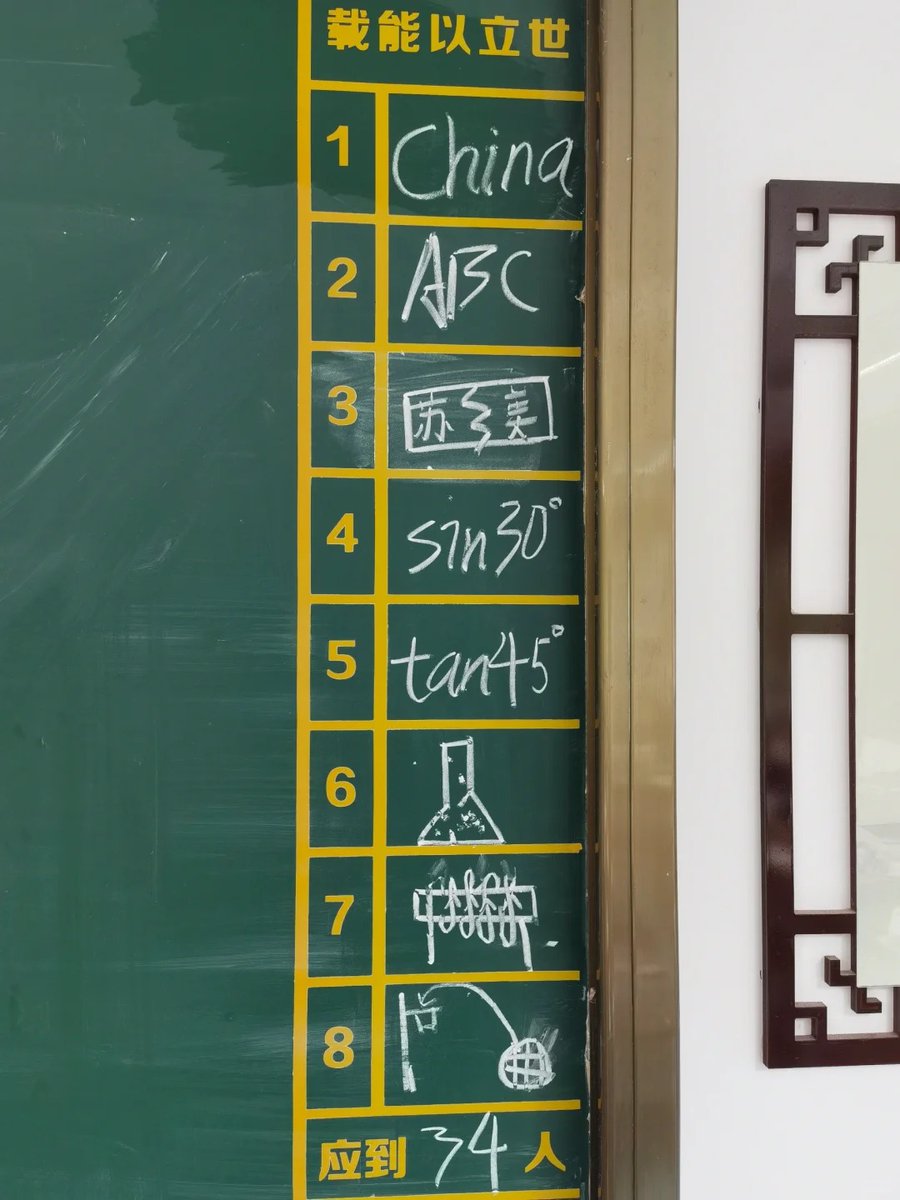 载能以立世
1 China
2 ABC
3 苏 美
4 sin30°
5 tan45°
6
7
8
应到 34 人